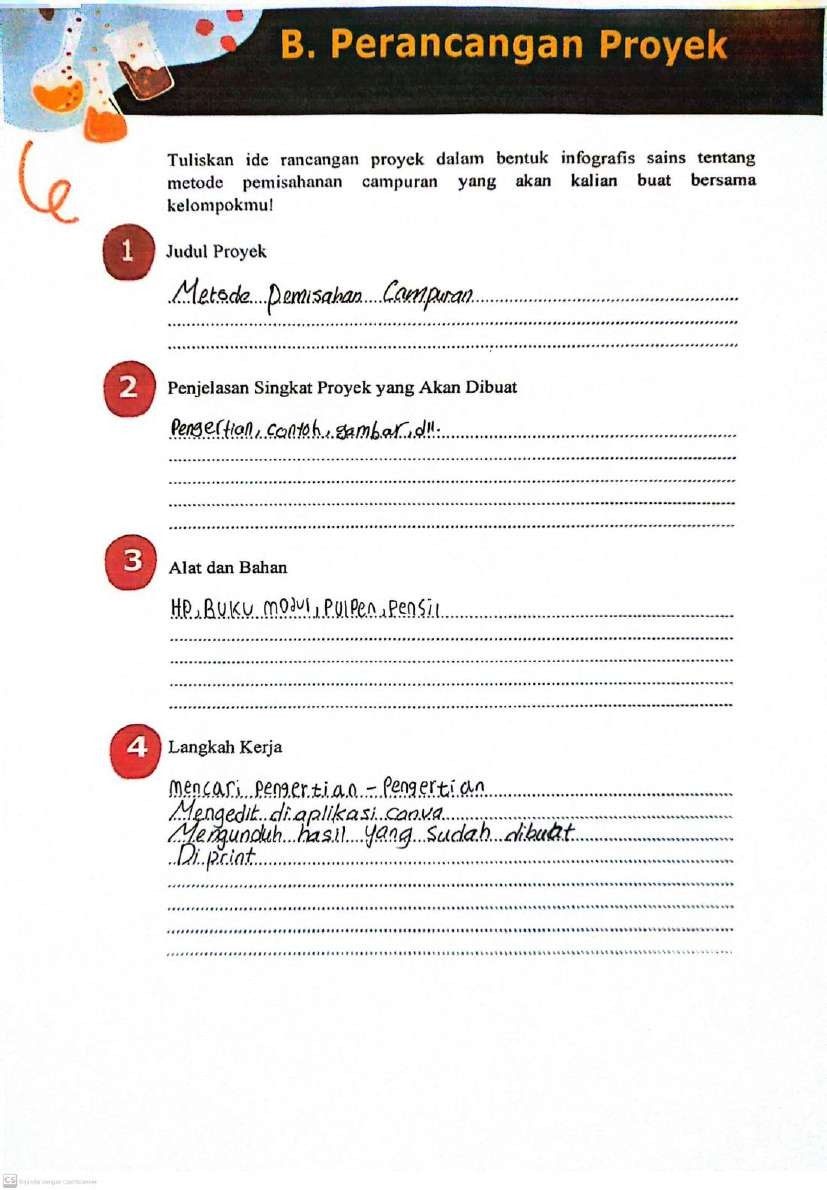 B. Perancangan Proyek
Tuliskan ide rancangan proyek dalam bentuk infografis sains tentang
metode pemisahanan campuran yang akan kalian buat bersama
kelompokmu!
1 Judul Proyek
Metode Pemisahan Campuran
2 Penjelasan Singkat Proyek yang Akan Dibuat
Pengertian, contoh, gambar, dll.
3 Alat dan Bahan
HP, Buku modul, Pulpen, Pensil
4 Langkah Kerja
Mencari Pengertian - Pengertian
Mengedit di aplikasi canva
Mengunduh hasil yang sudah dibuat
Di print
CS